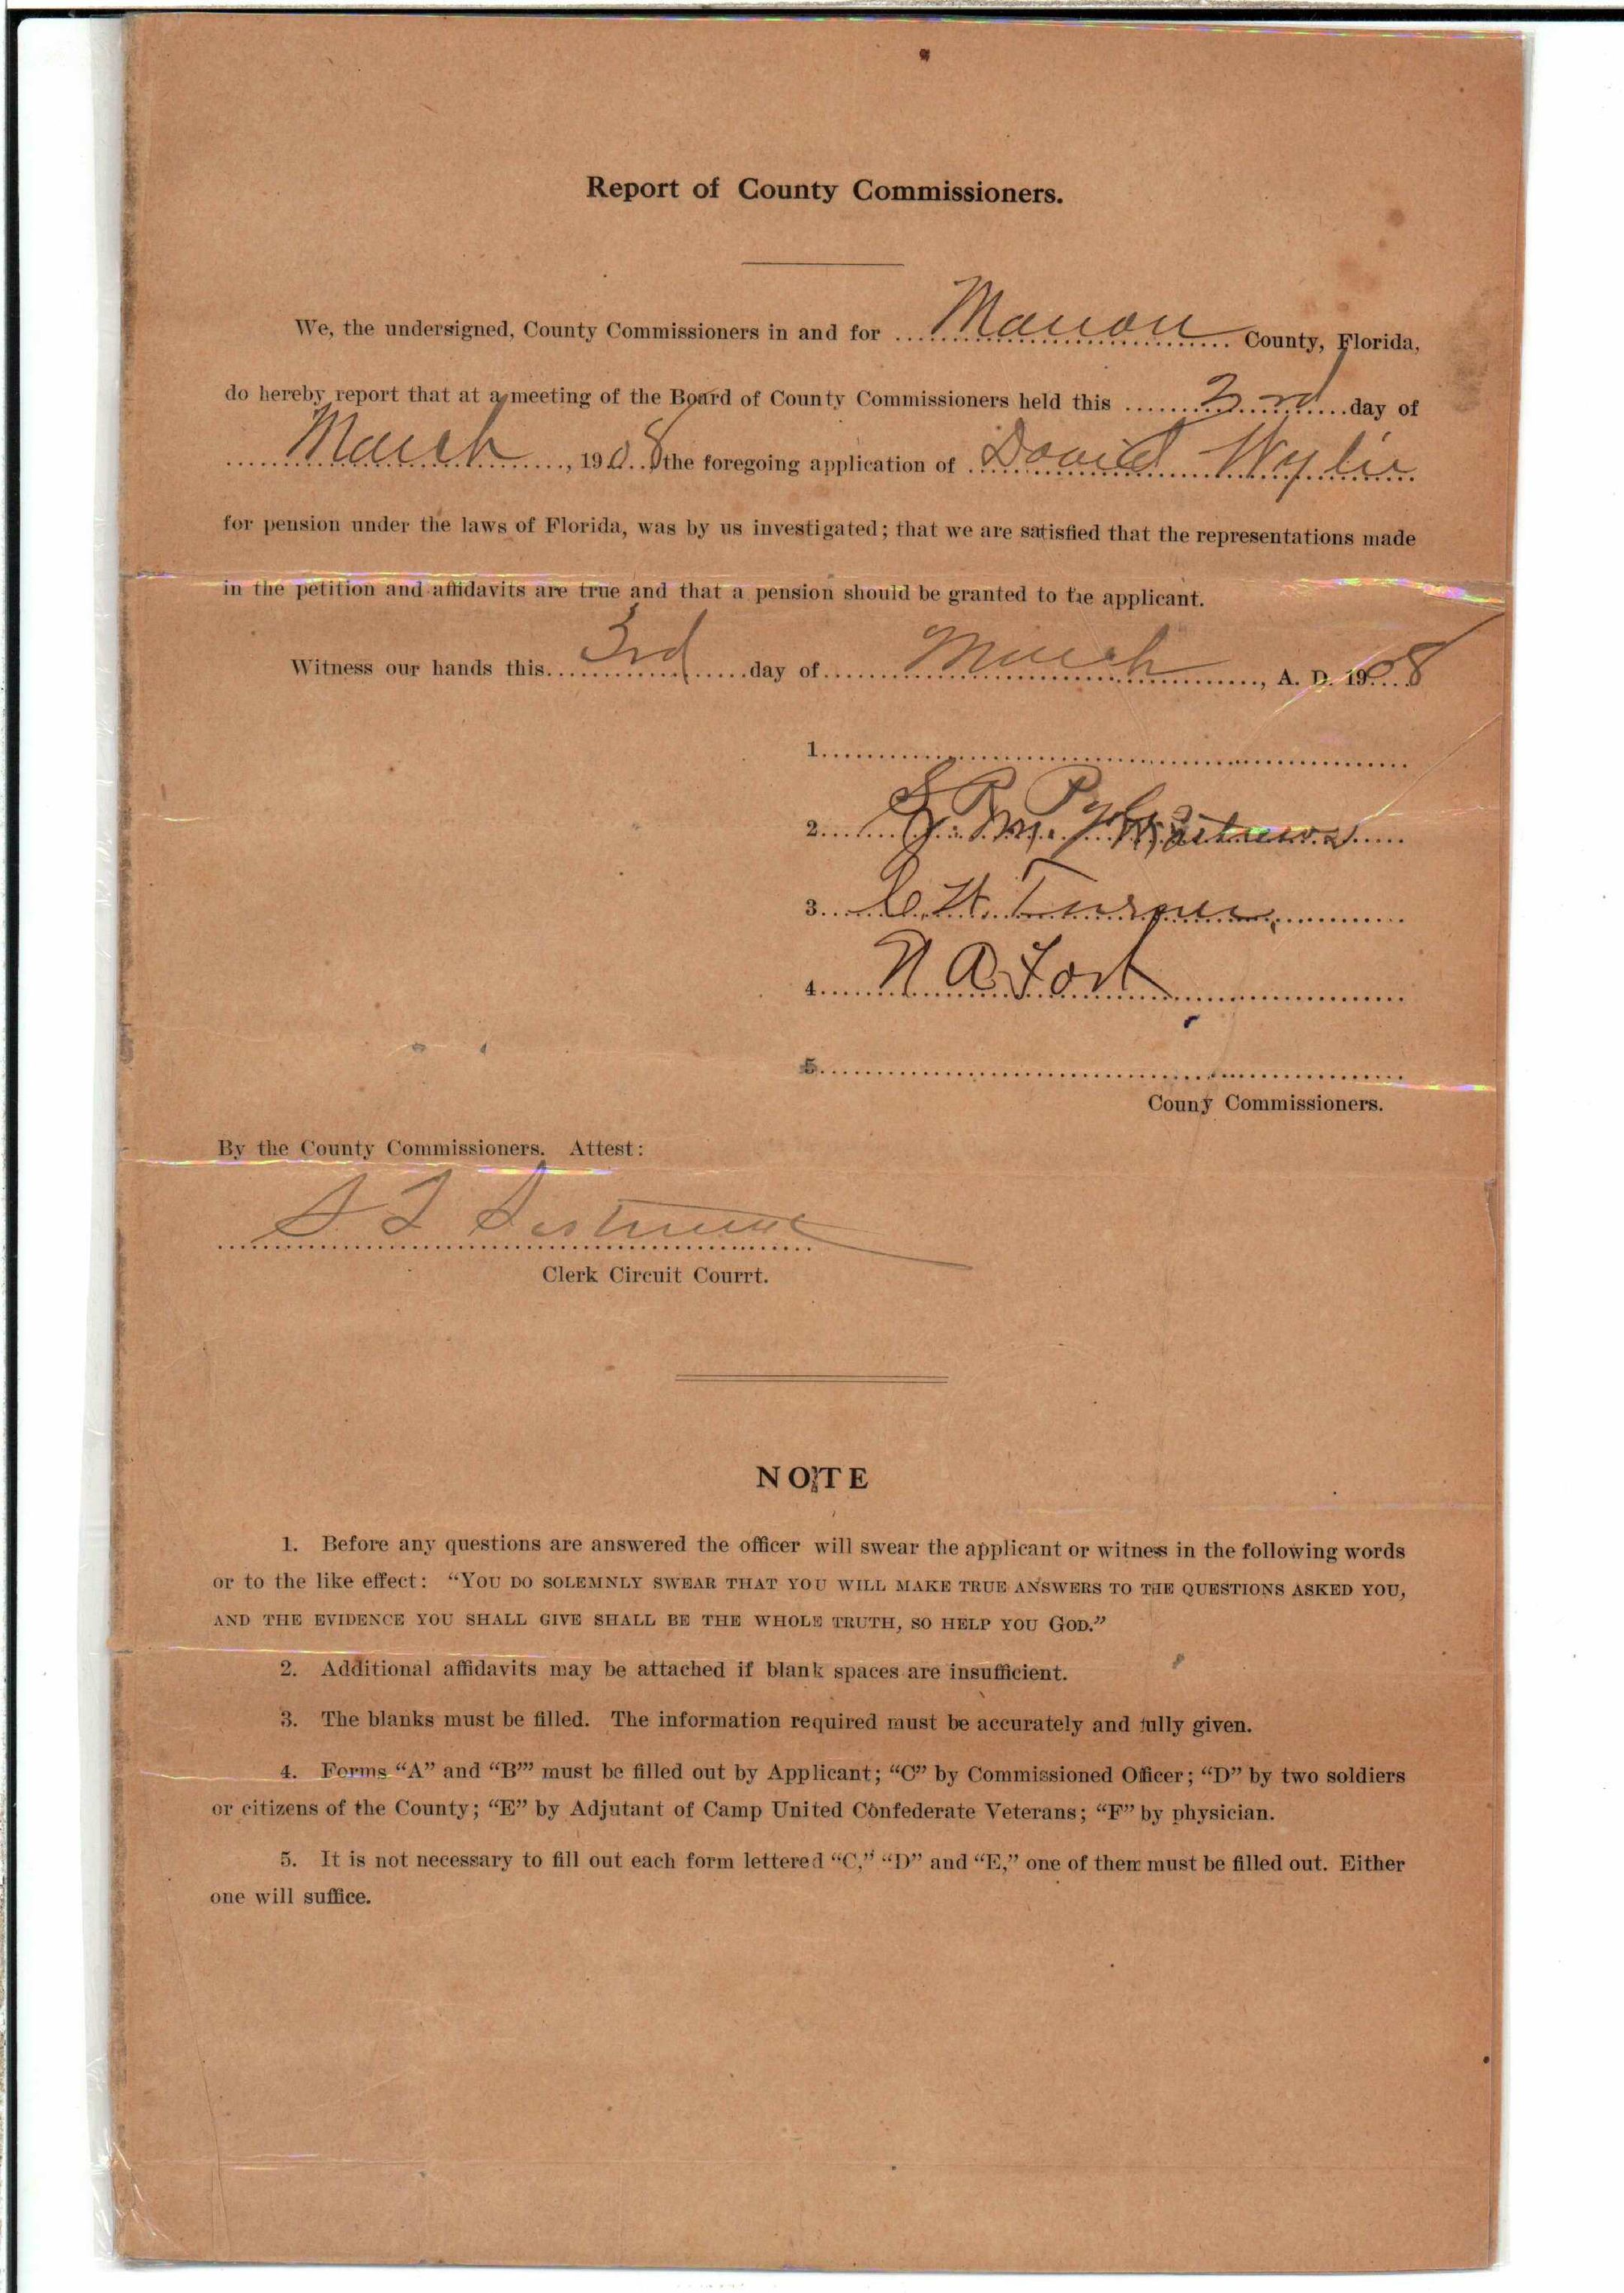 Report of County Commissioners.
We, the undersigned, County Commissioners in and for Marion County, Florida,
do hereby report that at a meeting of the Board of County Commissioners held this 3rd day of
March, 1908 the foregoing application of David Wylie
for pension under the laws of Florida, was by us investigated; that we are satisfied that the representations made
in the petition and affidavits are true and that a pension should be granted to the applicant.
Witness our hands this 3rd day of March, A. D. 1908
1.
2.
3.
4. N A Fort
5.
Couny Commissioners.
By the County Commissioners. Attest:
S T Sistrunk
Clerk Circuit Courrt.
NOTE
1. Before any questions are answered the officer will swear the applicant or witness in the following words
or to the like effect: "YOU DO SOLEMNLY SWEAR THAT YOU WILL MAKE TRUE ANSWERS TO THE QUESTIONS ASKED YOU,
AND THE EVIDENCE YOU SHALL GIVE SHALL BE THE WHOLE TRUTH, SO HELP YOU GOD."
2. Additional affidavits may be attached if blank spaces are insufficient.
3. The blanks must be filled. The information required must be accurately and fully given.
4. Forms "A" and "B"' must be filled out by Applicant; "C" by Commissioned Officer; "D" by two soldiers
or citizens of the County; "E" by Adjutant of Camp United Confederate Veterans; "F" by physician.
5. It is not necessary to fill out each form lettered "C," "D" and "E," one of them must be filled out. Either
one will suffice.